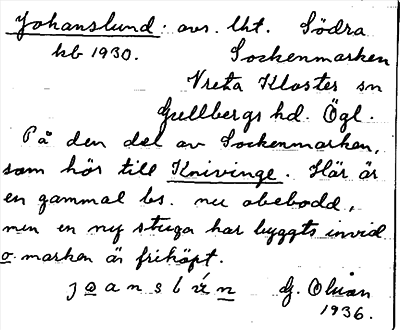 Johanslund: avs. lht. Södra
kb 1930. Sockenmarken
Vreta Kloster sn
Gullbergs hd. Ögl.
På den del av Sockenmarken,
som hör till Knivinge. Här är
en gammal bs. nu obebodd,
men en ny stuga har byggts invid
o marken är friköpt.
joansləńn G.
1936.